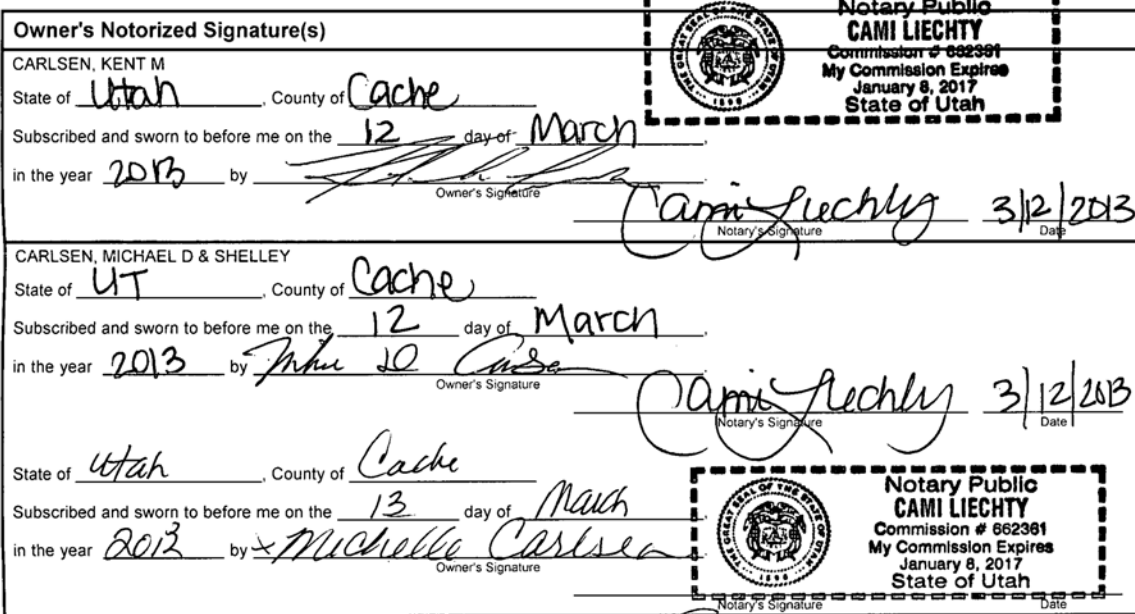 Notary Public
CAMI LIECHTY
Commission # 662361
My Commission Expires
January 8, 2017
State of Utah
THE GREAT SEAL OF THE STATE OF UTAH
1896
Owner's Notorized Signature(s)
CARLSEN, KENT M
State of Utah, County of Cache
Subscribed and sworn to before me on the 12 day of March,
in the year 2013 by
Owner's Signature
Cami Liechty 3/12/2013
Notary's Signature Date
CARLSEN, MICHAEL D & SHELLEY
State of UT, County of Cache
Subscribed and sworn to before me on the 12 day of March,
in the year 2013 by
Owner's Signature
Cami Liechty 3/12/2013
Notary's Signature Date
State of Utah, County of Cache
Subscribed and sworn to before me on the 13 day of March,
in the year 2013 by x Michelle Carlsen
Owner's Signature
Notary Public
CAMI LIECHTY
Commission # 662361
My Commission Expires
January 8, 2017
State of Utah
THE GREAT SEAL OF THE STATE OF UTAH
1896
Notary's Signature Date